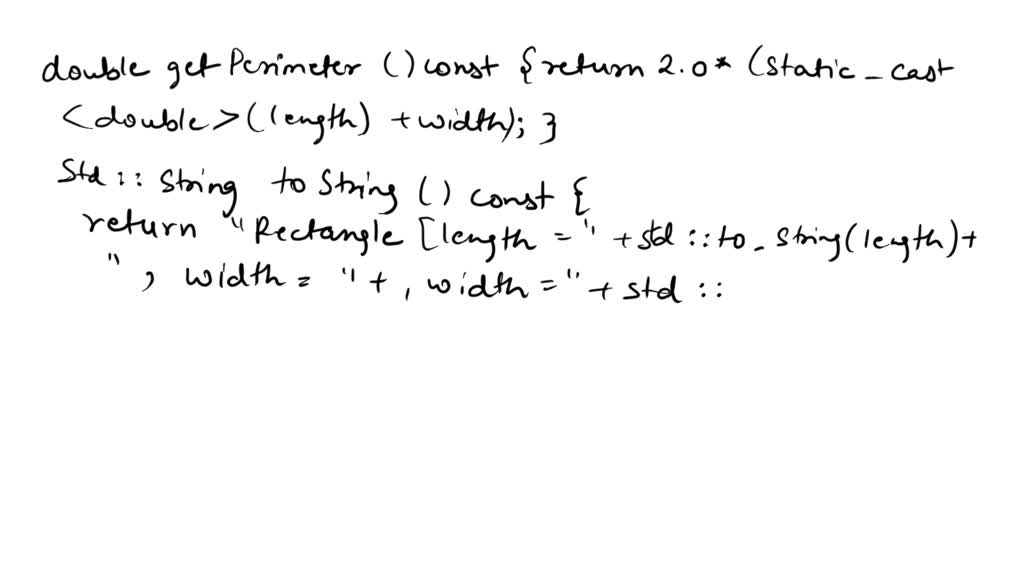 double getPerimeter () const { return 2.0* (static_cast
<double>(length) +width); }
Std :: String to String () const {
return "Rectangle [length = " + std :: to_String(length)+
", width = "+, width = " + std ::